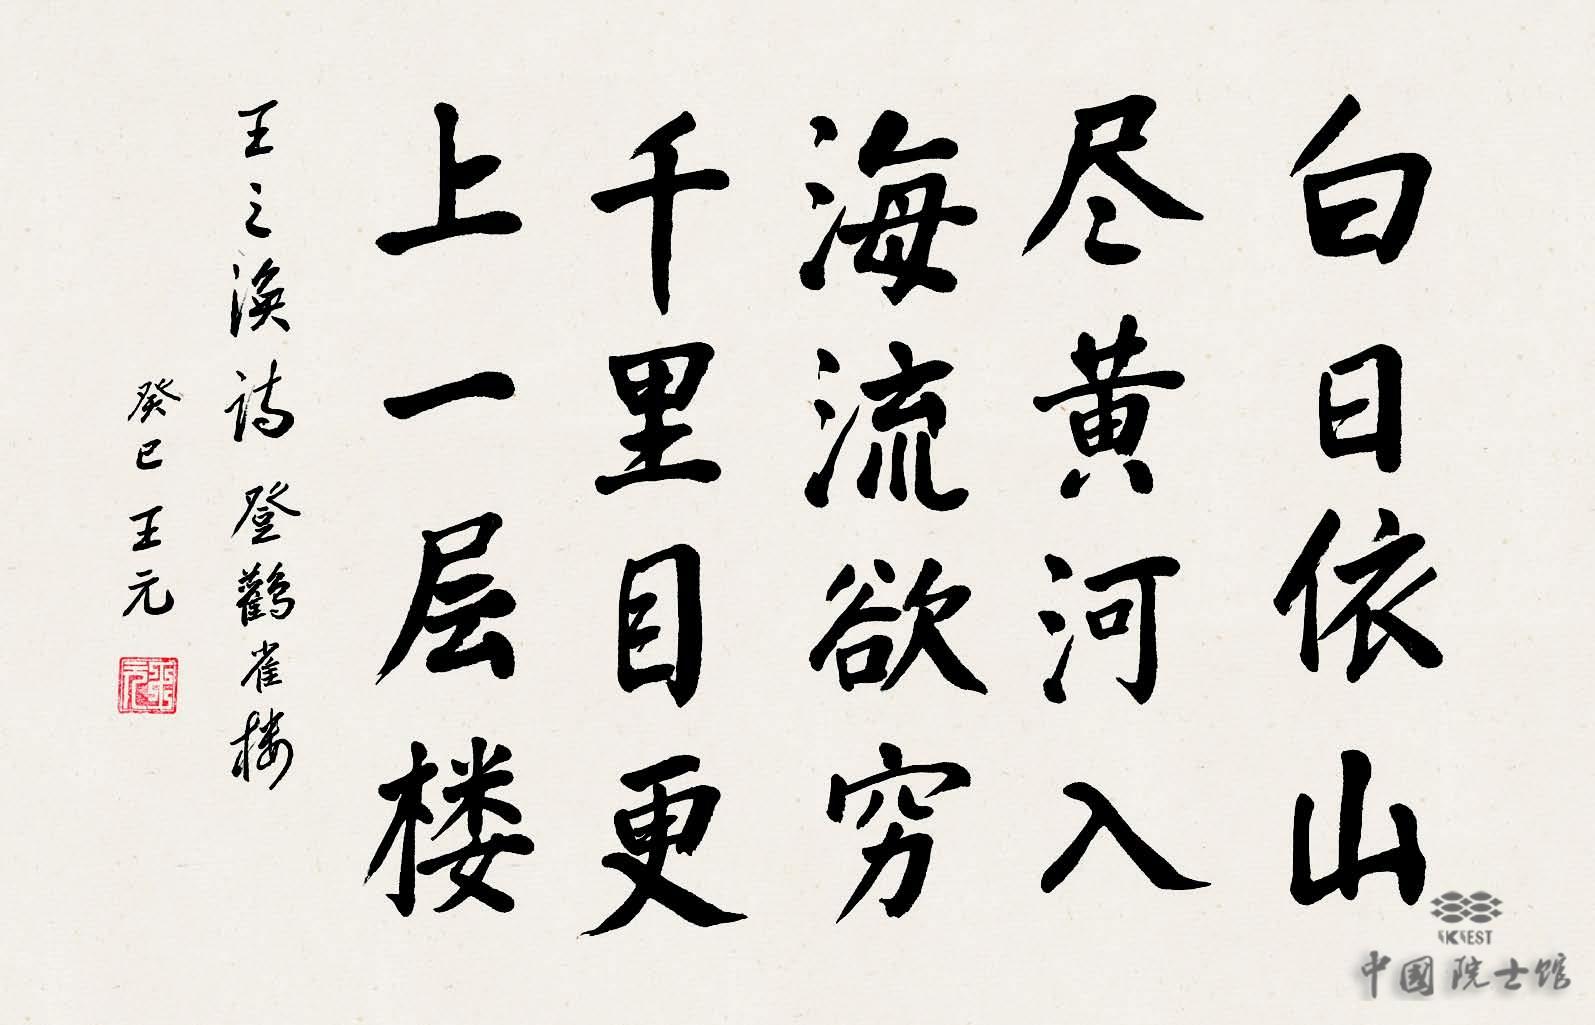 白日依山
尽黄河入
海流欲穷
千里目更
上一层楼
王之涣诗登鹳雀楼
癸巳王元
王元
IKIEST
中国院士馆